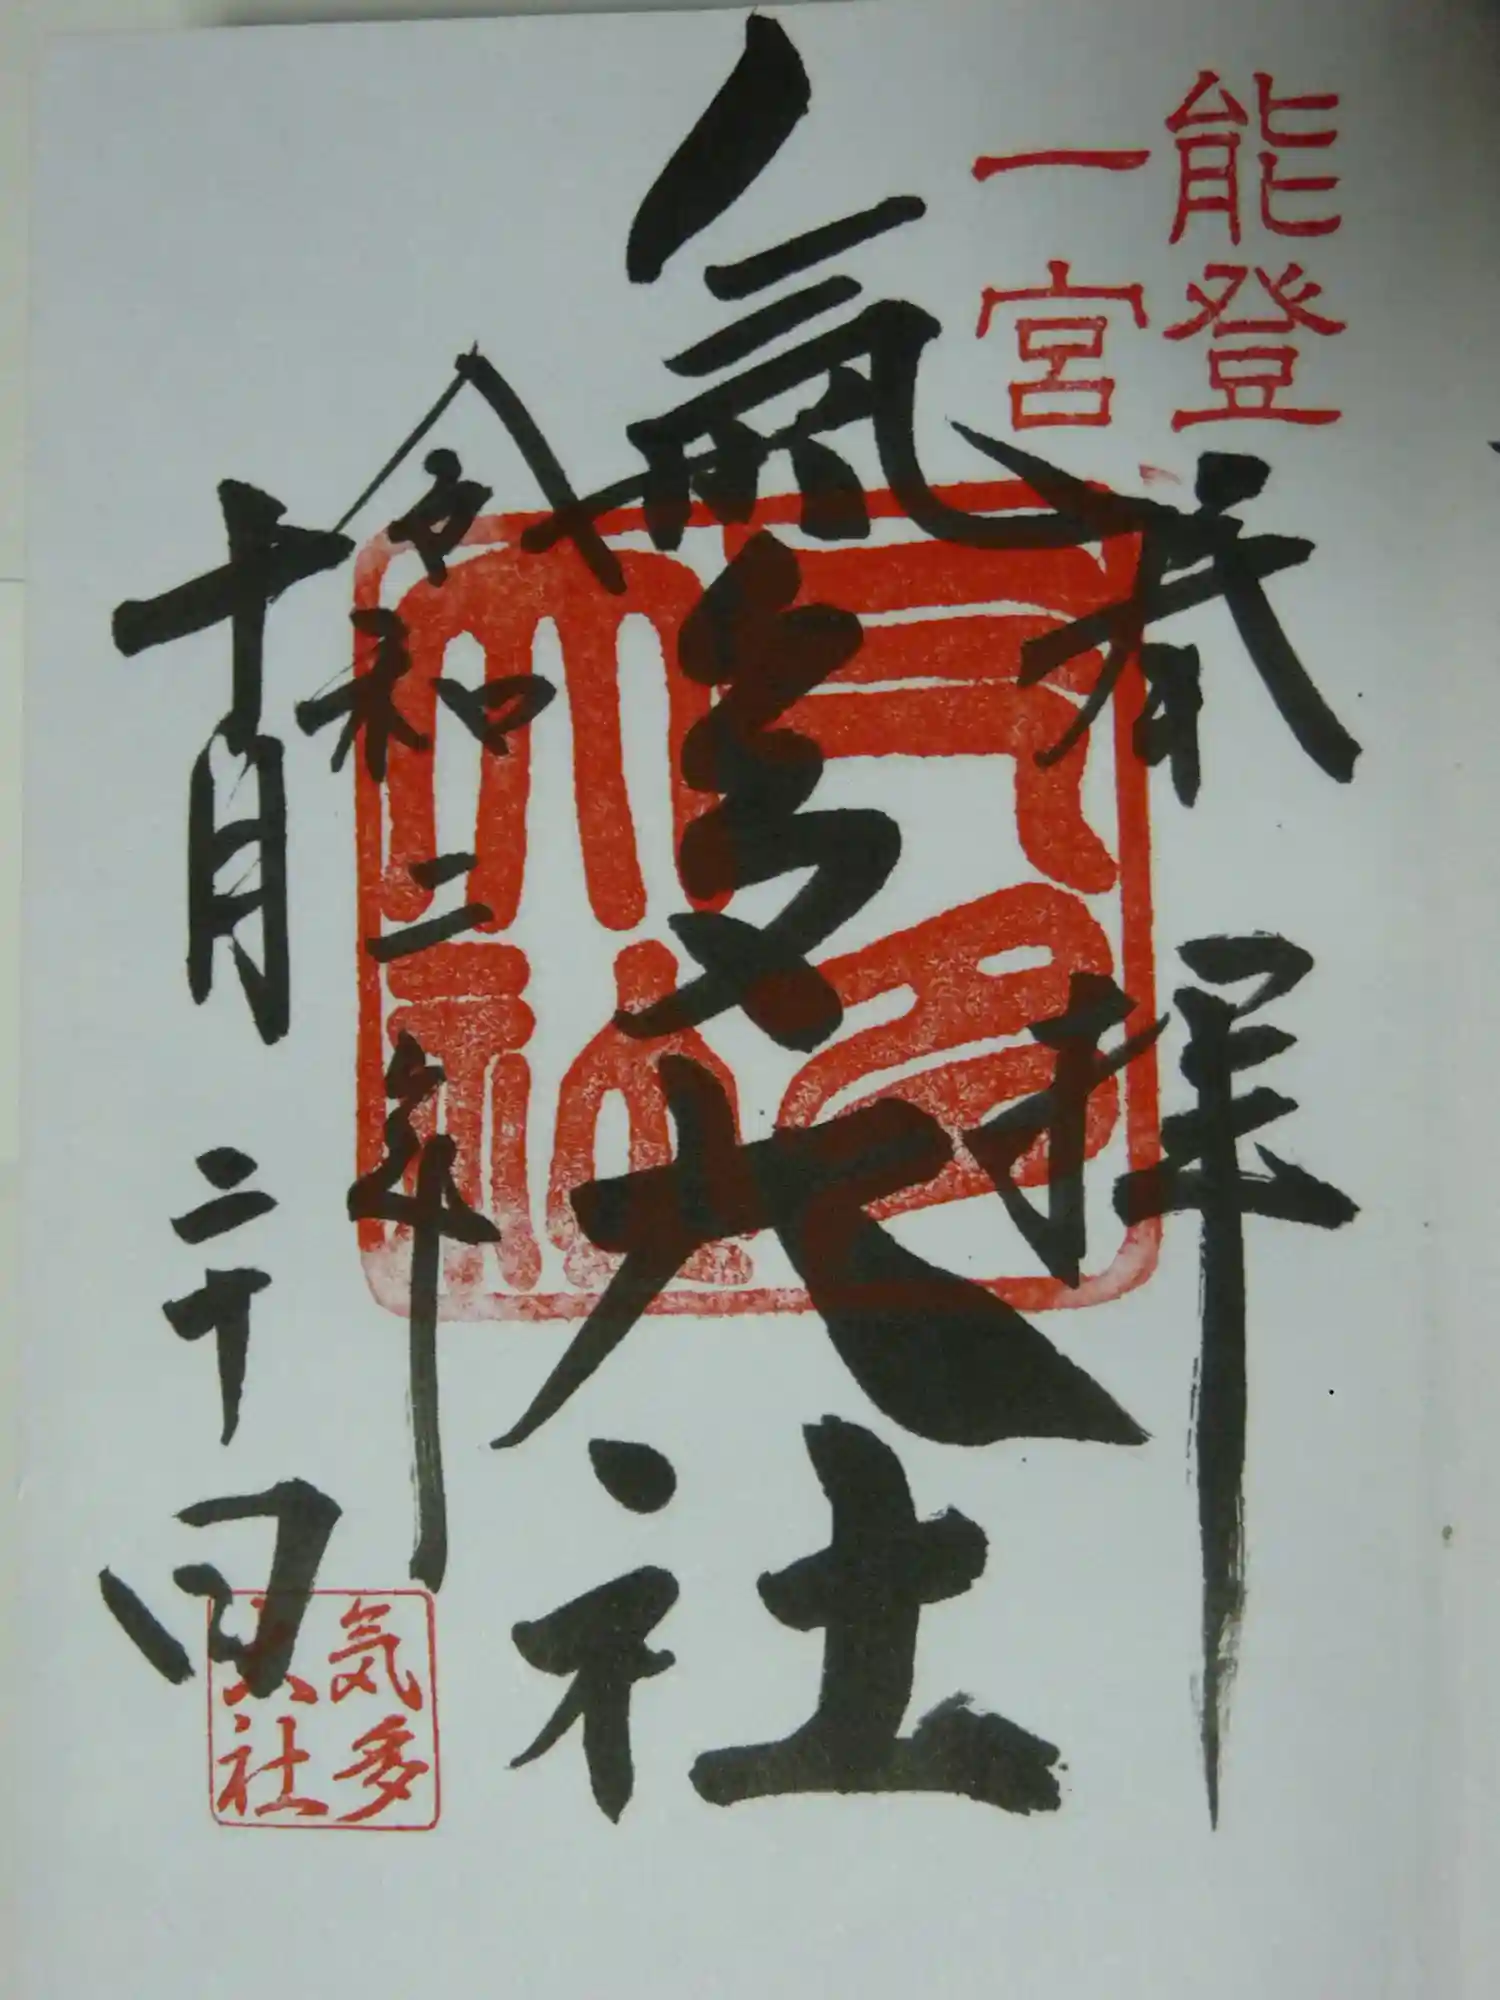 能登
一宮
奉拝
氣多大社
令和二年
十月二十日
気多
大社
気多
大社